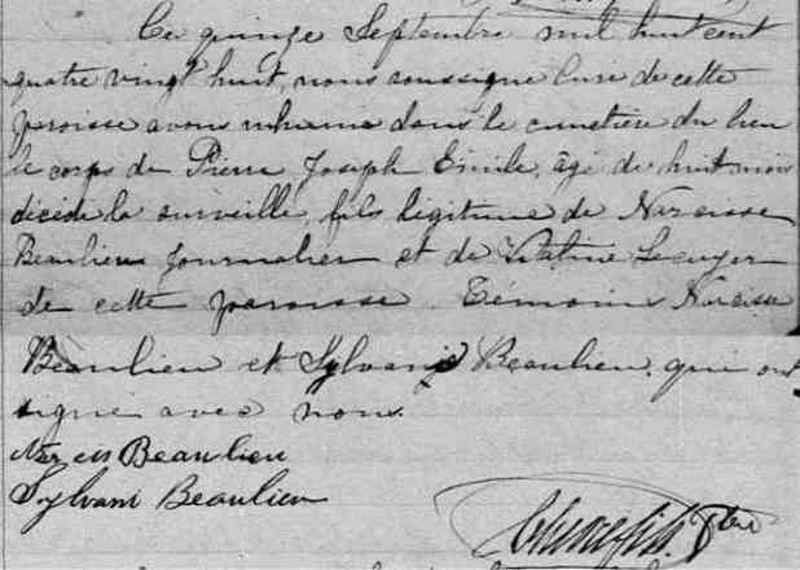 Ce quinze Septembre mil huit cent
quatre vingt huit, nous soussigné Curé de cette
paroisse avons inhumé dans le cimetière du lieu
le corps de Pierre Joseph Emile, âgé de huit mois
décédé la surveille, fils légitime de Narcisse
Beaulieu journalier et de Lecuyer
de cette paroisse. Témoins Narcisse
Beaulieu et Sylvanie Beaulieu, qui ont
signé avec nous.
Narcis Beaulieu
Sylvani Beaulieu
Ptre